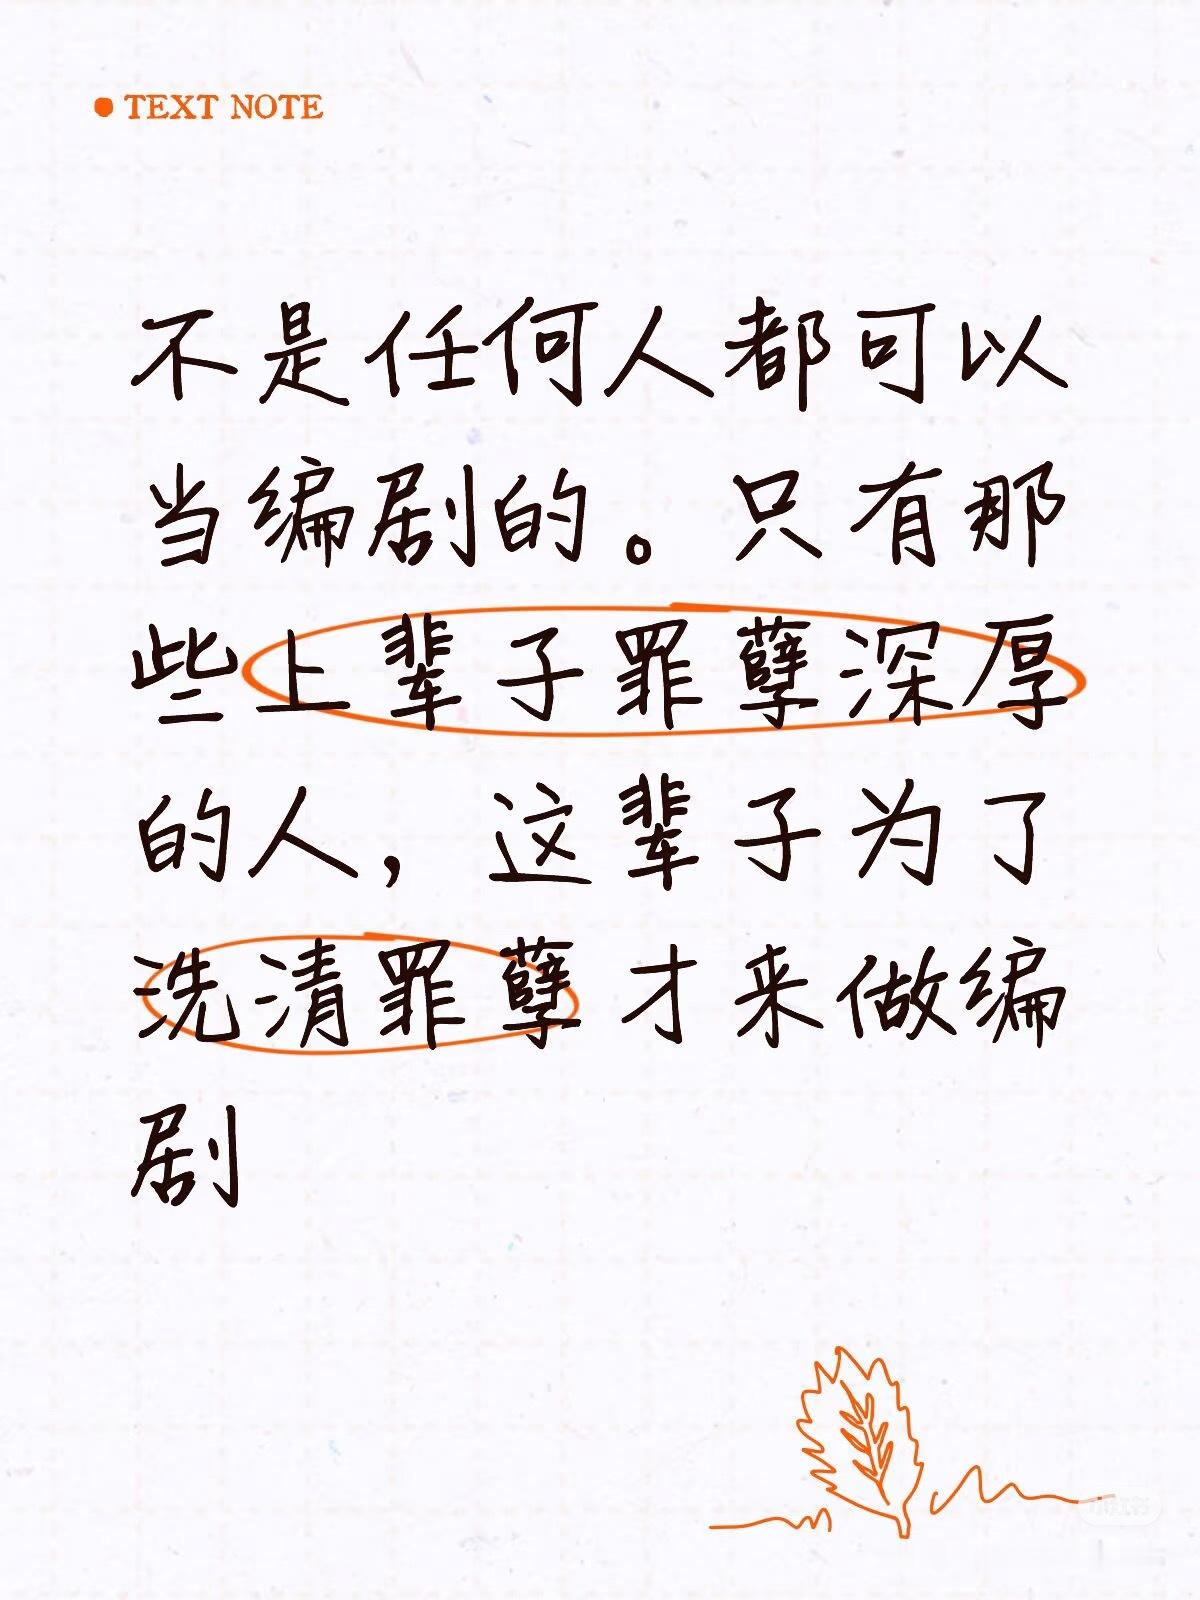 TEXT NOTE
不是任何人都可以
当编剧的。只有那
些上辈子罪孽深厚
的人，这辈子为了
洗清罪孽才来做编
剧
小红书